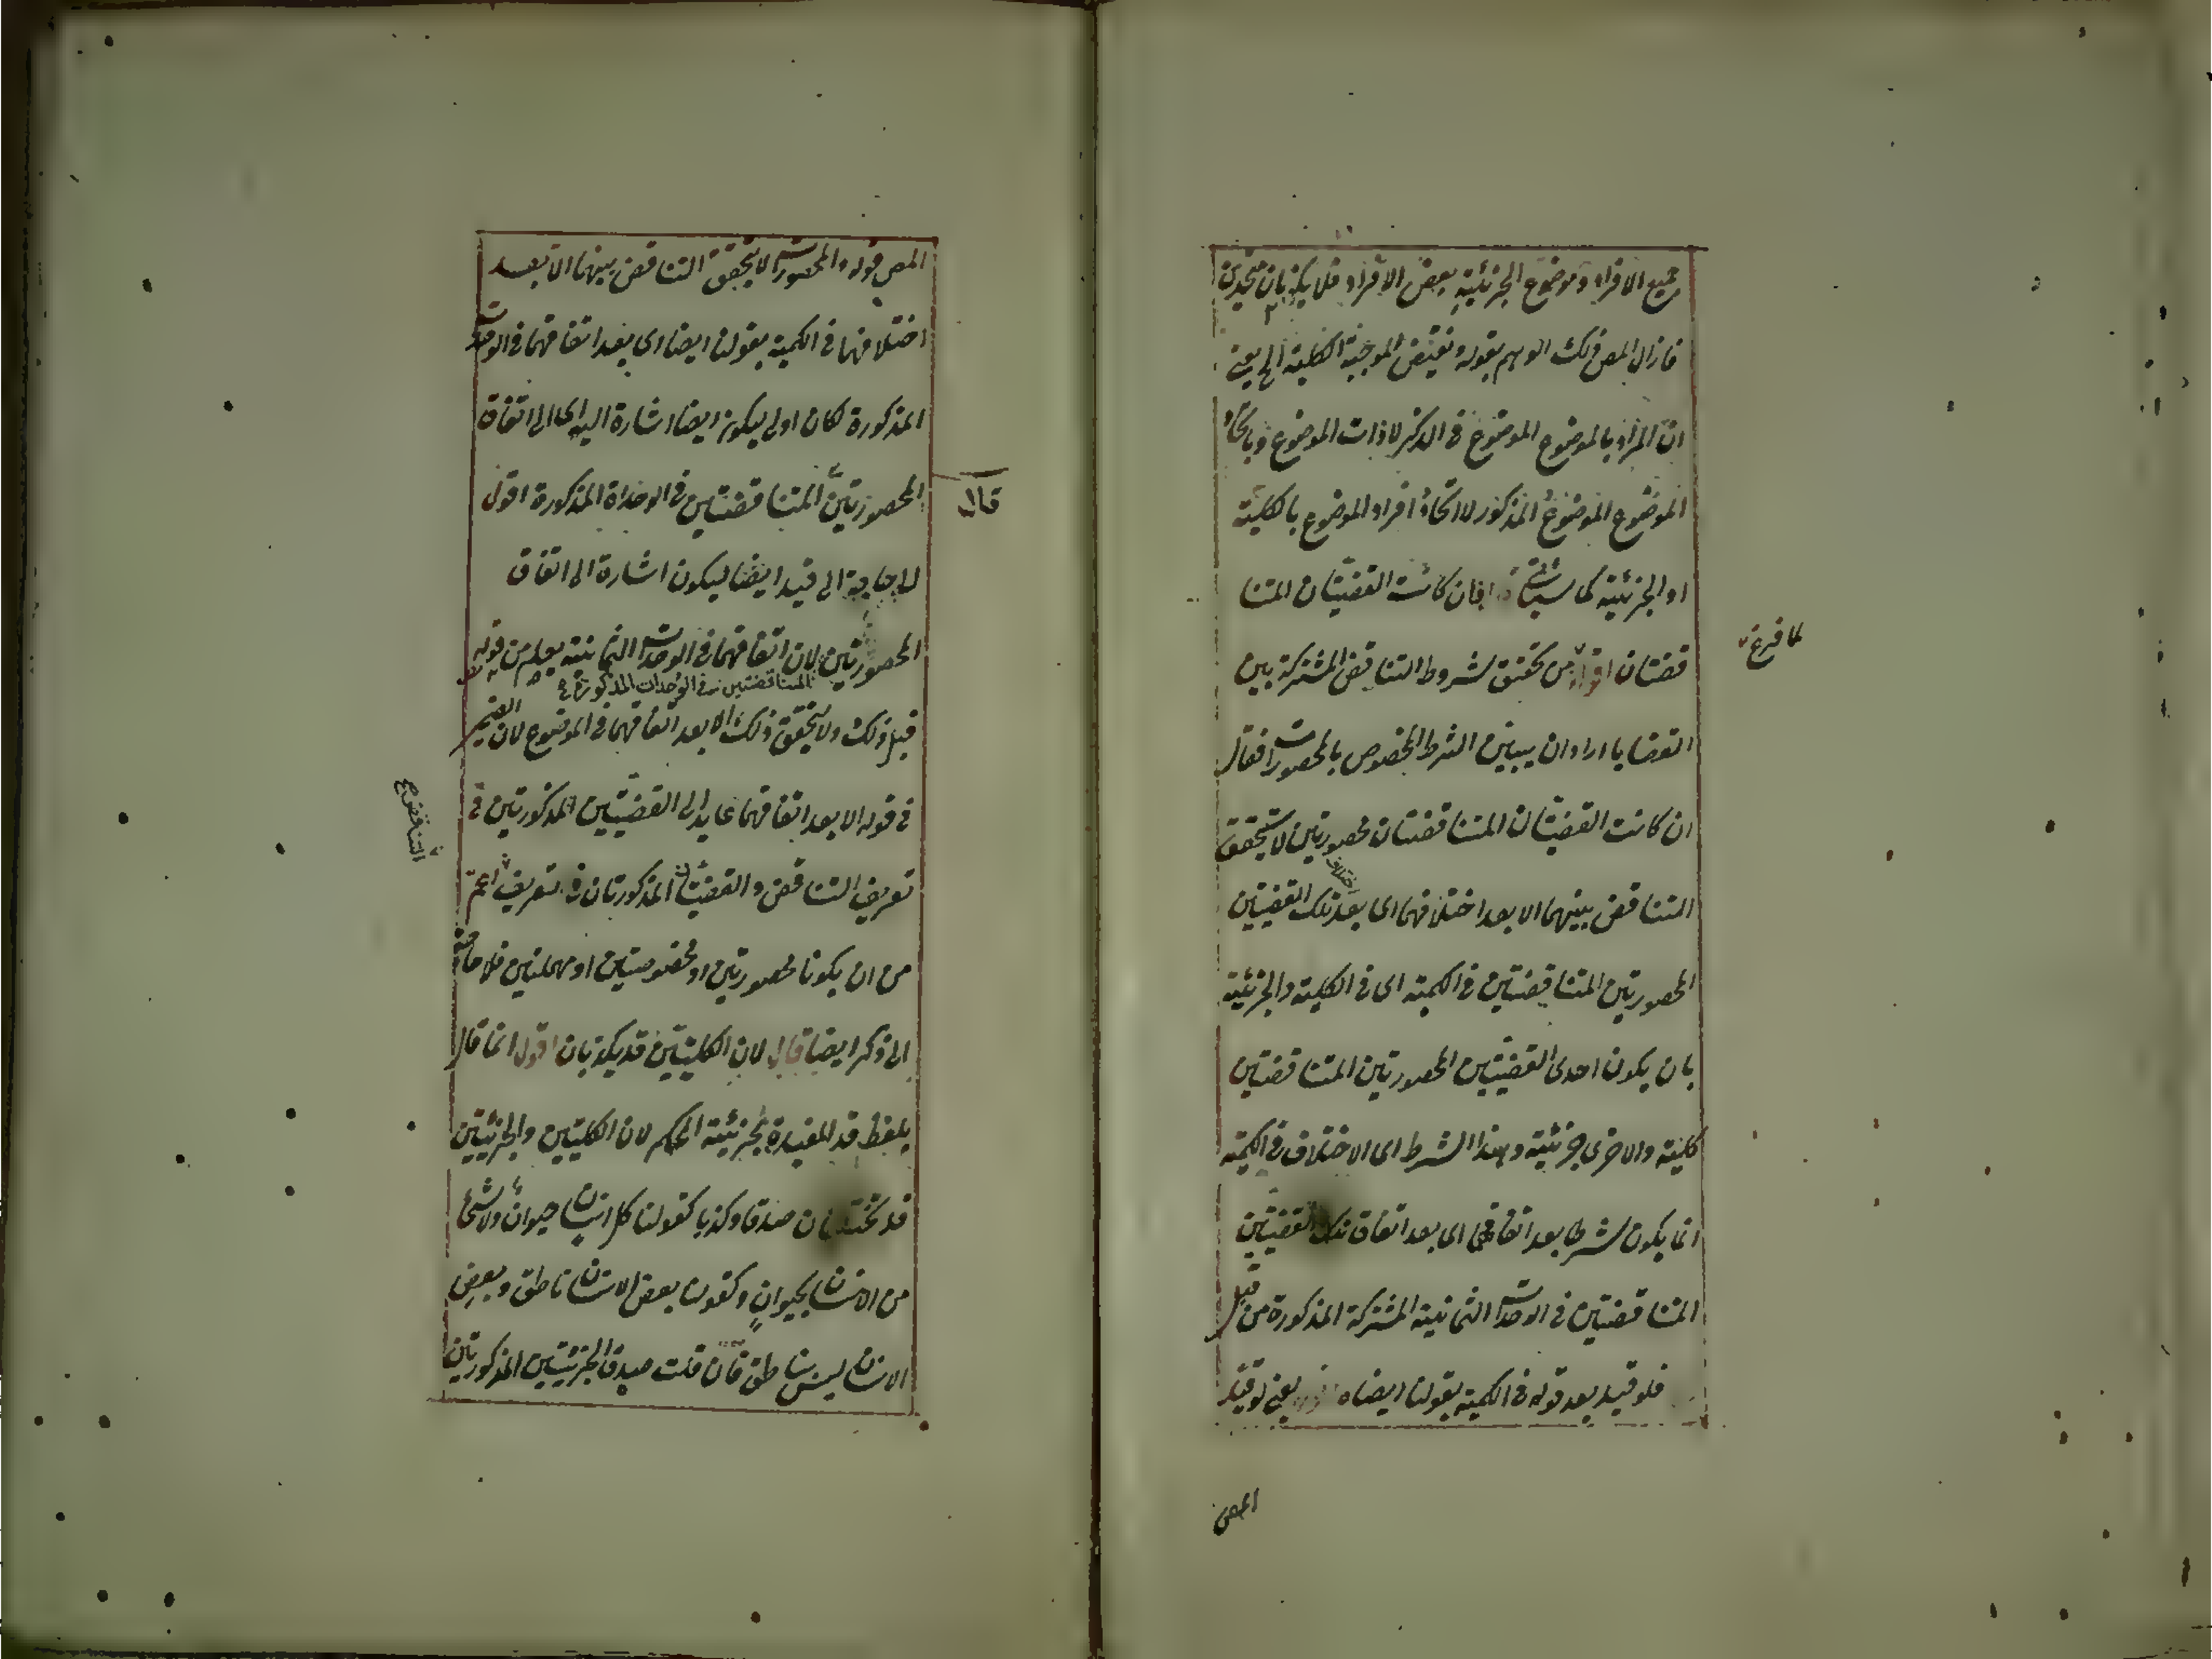 جميع الافراد وموضوع الجزئية بعض الافراد فلا يكونان متحدين
فازال المص ذلك الوهم بقوله ونقيض الموجبة الكلية الخ يعنى
ان المراد بالموضوع الموضوع فى الذكر لا ذات الموضوع وباتحاد
الموضوع الموضوع المذكور لا اتحاد افراد الموضوع بالكلية
او الجزئية كما سيأتى فان كانت القضيتان المتنا
قضتان اقول من تحقق شروط التناقض المشتركة بين
لما فرغ
القضايا اراد ان يبين الشرط المخصوص بالمحصورات فقال
ان كانت القضيتان المتناقضتان محصورتين لا يتحقق
التناقض بينهما الا بعد اختلافهما اى بعد تلك القضيتين
اختلاف
المحصورتين المتناقضتين فى الكمية اى فى الكلية والجزئية
بان يكون احدى القضيتين المحصورتين المتناقضتين
كلية والاخرى جزئية وهذا الشرط اى الاختلاف فى الكمية
انما يكون شرطا بعد اتفاقهما اى بعد اتفاق تلك القضيتين
المتناقضتين فى الوحدات الثمانية المشتركة المذكورة من قبل
فلو قيد بعد قوله فى الكمية بقولنا ايضا يعنى لو قيد
المص
المص قوله والمحصورات لا يتحقق التناقض بينهما الا بعد
اختلافهما فى الكمية بقولنا ايضا اى بعد اتفاقهما فى الوحدات
المذكورة لكان اولى ليكون ايضا اشارة اليه اى الى اتفاق
المحصورتين المتناقضتين فى الوحداة المذكورة اقول
قال
لا حاجة الى قيد ايضا ليكون اشارة الى اتفاق
المحصورتين لان اتفاقهما فى الوحدات الثمانية يعلم من قوله
المتناقضتين فى الوحدات المذكورة
قبل ذلك ولا يتحقق ذلك الا بعد اتفاقهما فى الموضوع لان الضمير
فى قوله الا بعد اتفاقهما عايد الى القضيتين المذكورتين فى
تعريف التناقض والقضيتان المذكورتان فى تعريف اعم
التناقض
من ان يكونا محصورتين او مخصوصتين او مهملتين فلا حاجة
الى ذكر ايضا قال لان الكليتين قد يكذبان اقول انما قال
بلفظ قد المفيدة لجزئية الحكم لان الكليتين والجزئيتين
قد تختلفان صدقا وكذبا كقولنا كل انسان حيوان ولا شئ
من الانسان بحيوان وكقولنا بعض الانسان ناطق وبعض
الانسان ليس بناطق فان قلت صدق الجزئيتين المذكورتين